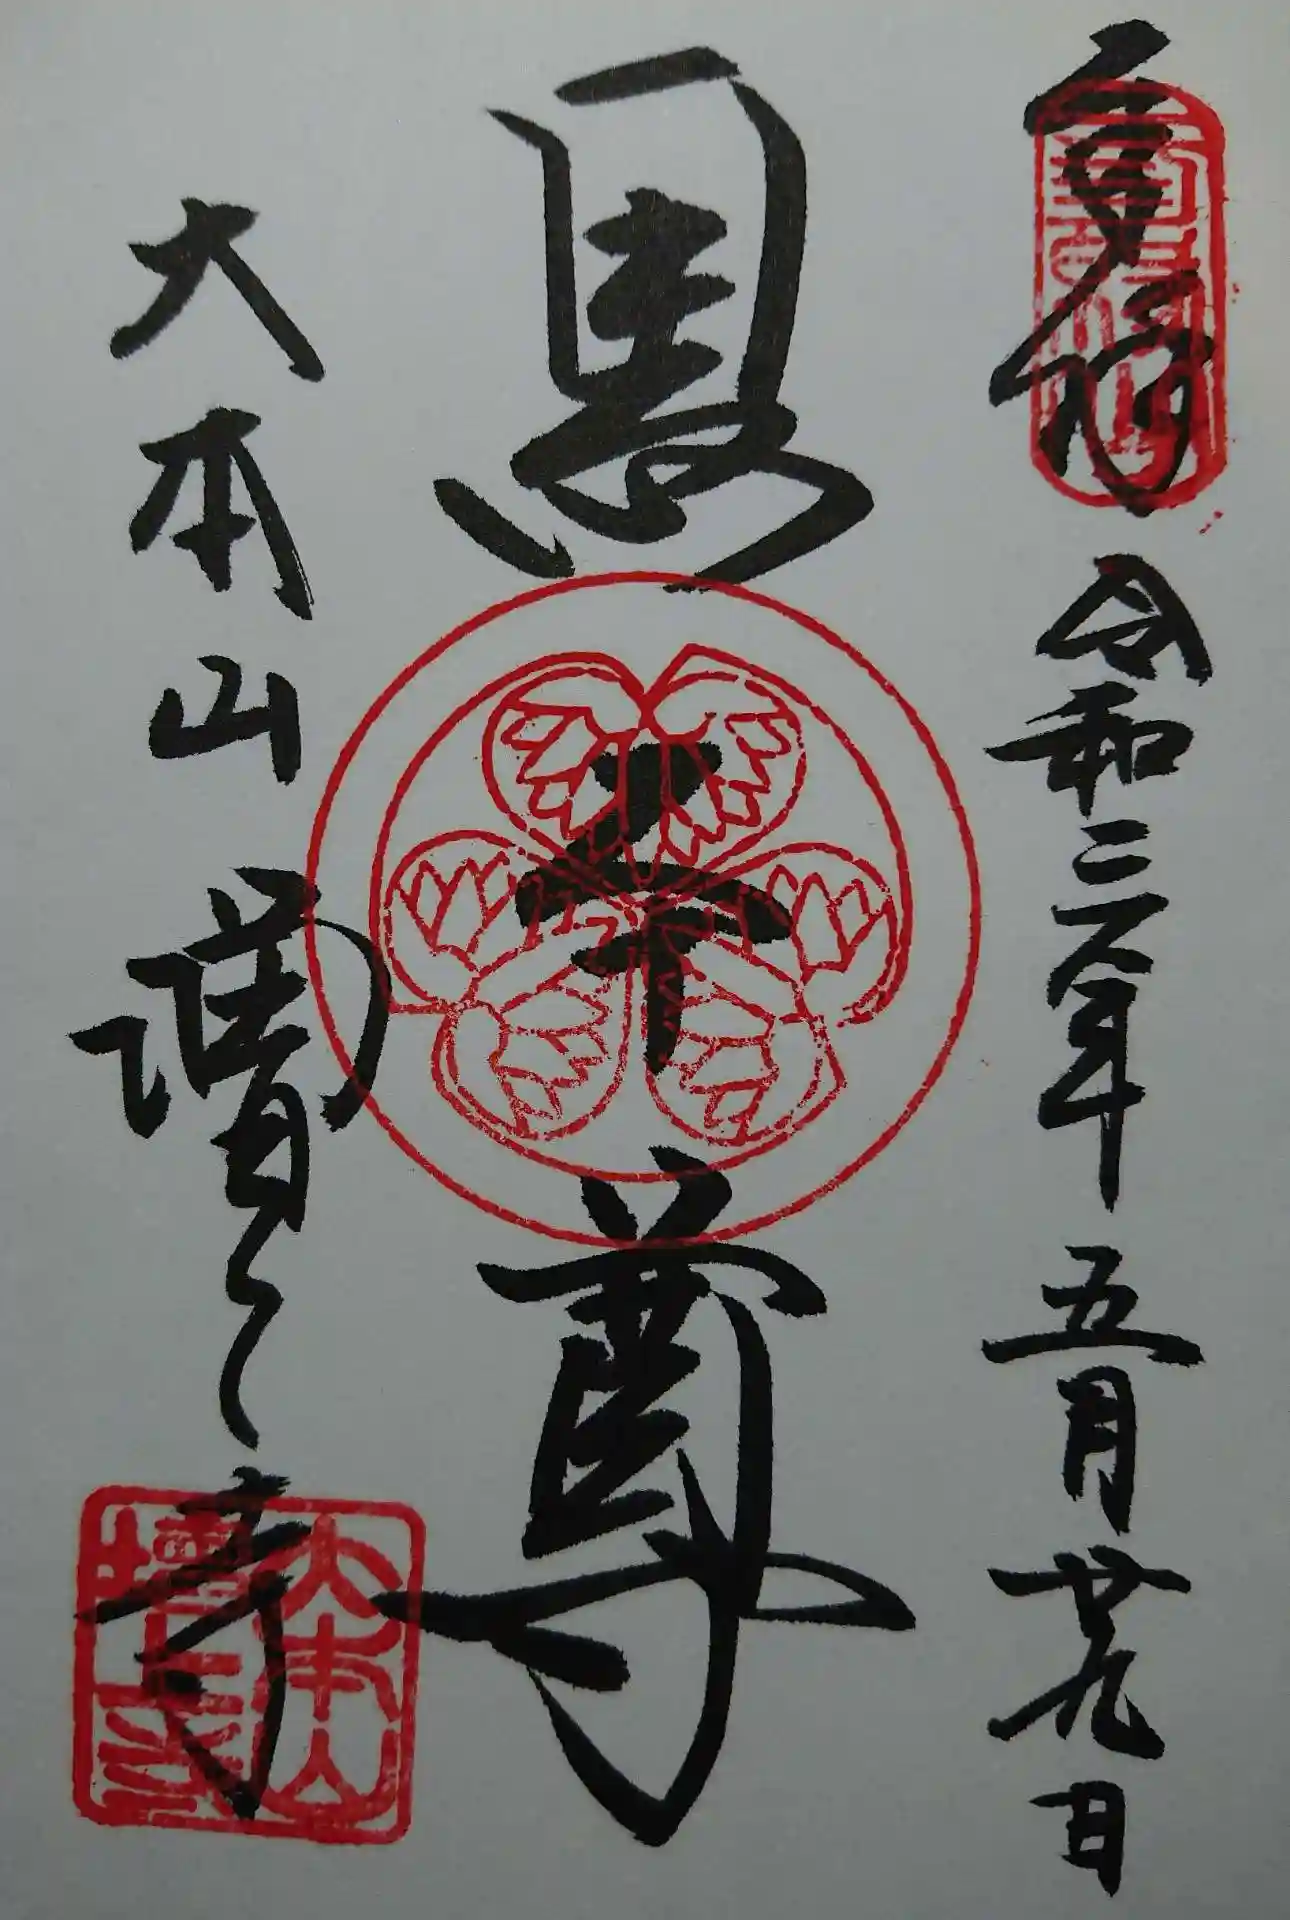 令和三年五月廿九日
黒本尊
大本山増上寺
大本山
増上寺